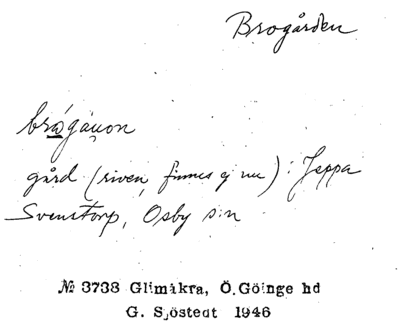 Brogården
brágánon
gård (riven, finnes ej nu) i Jeppa
Svenstorp, Osby s:n
№ 3738 Glimåkra, Ö. Göinge hd
G. Sjöstedt 1946